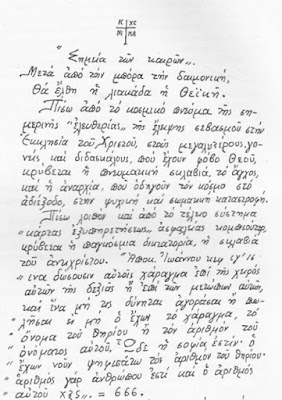 Ι C | X C
Ν Ι | Κ Α
"Σημεῖα τῶν καιρῶν„.
Μετά ἀπό τήν μπόρα τήν δαιμονική,
Θά ἔλθῃ ἡ λιακάδα ἡ Θεϊκή.
Πίσω ἀπό τό κοσμικό πνεῦμα τῆς ση-
μερινῆς "ἐλευθερίας„ τῆς ἔλειψης σεβασμοῦ στήν
Ἐκκλησία τοῦ Χριστοῦ, στούς μεγαλυτέρους, γο-
νεῖς, καί διδασκάλους, πού ἔχουν φόβο Θεοῦ,
κρύβεται ἡ πνευματική σκλαβιά, τό ἄγχος,
καί ἡ ἀναρχία, πού ὁδηγοῦν τόν κόσμο στό
ἀδιέξοδο, στήν ψυχική καί σωματική καταστροφή.
Πίσω λοιπόν καί ἀπό τό τέλειο σύστημα
"κάρτας ἐξυπηρετήσεως„ ἀσφαλείας κομπιοῦτερ,
κρύβεται ἡ παγκόσμια δικτατορία, ἡ σκλαβιά
τοῦ ἀντιχρίστου. "Ἀποκ. Ἰωάννου κεφ ιγ´ 16
" ἵνα δώσουσιν αὐτοῖς χάραγμα ἐπί τῆς χειρός
αὐτῶν τῆς δεξιᾶς ἤ ἐπί τῶν μετώπων αὐτῶν,
καί ἵνα μή τις δύνηται ἀγοράσαι ἤ πω-
" λῆσαι εἰ μή ὁ ἔχων τό χάραγμα, τό
" ὄνομα τοῦ θηρίου ἤ τόν ἀριθμόν τοῦ
" ὀνόματος αὐτοῦ, Ὧδε ἡ σοφία ἐστίν· ὁ
" ἔχων νοῦν ψηφισάτω τόν ἀριθμόν τοῦ θηρίου·
" ἀριθμός γάρ ἀνθρώπου ἐστί καί ὁ ἀριθμός
" αὐτοῦ χξς„. = 666.